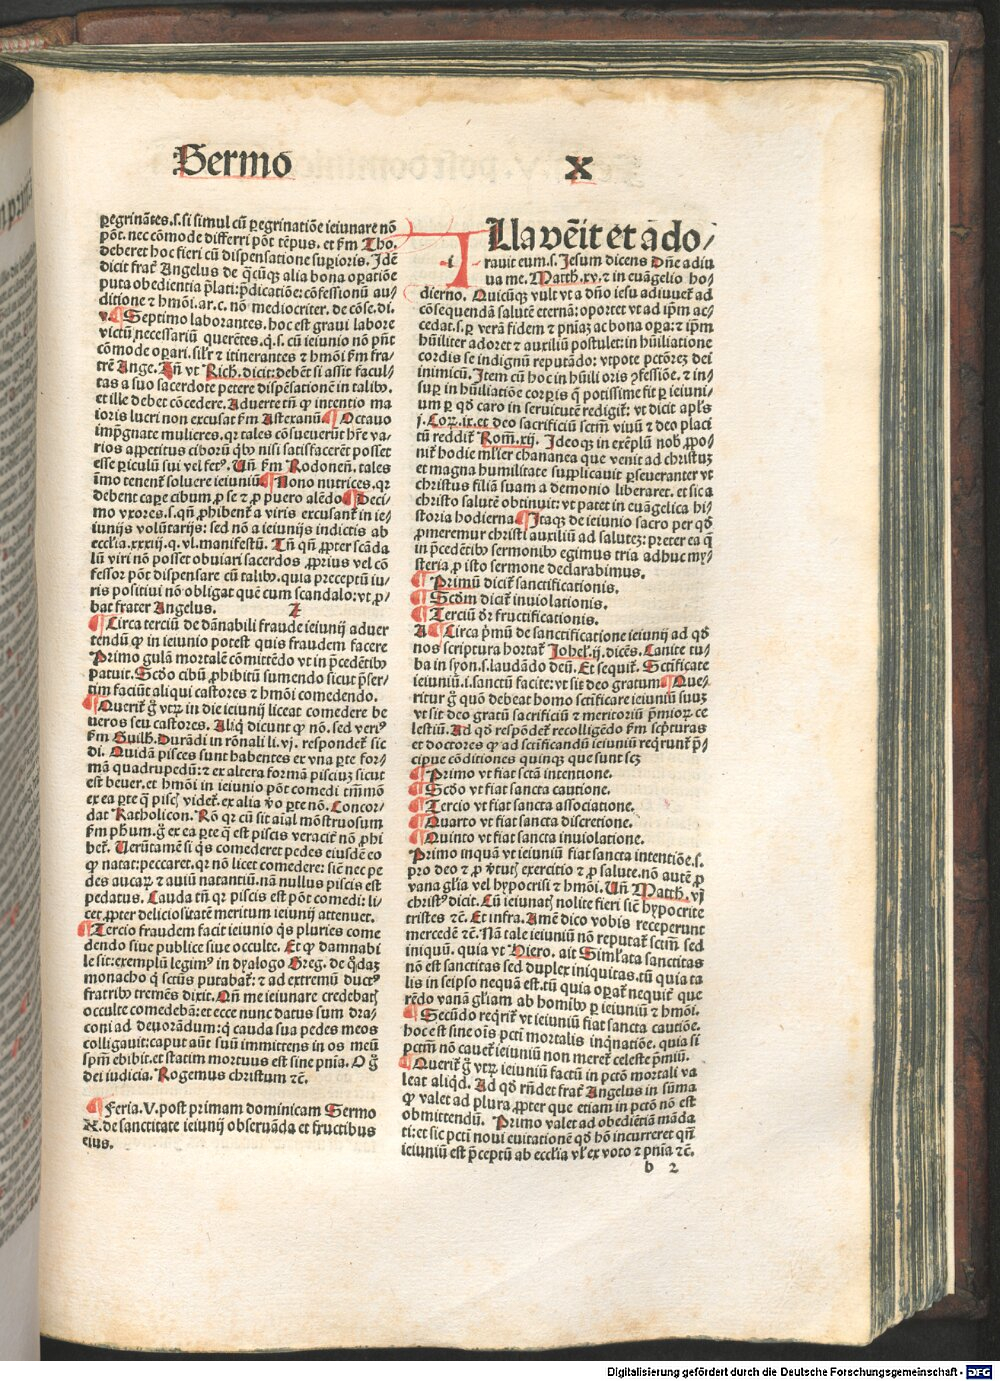 Sermo X
ꝑegrinātes.s.si simul cū ꝑegrinatiōe ieiunare nō
pōt. nec cōmode differri pōt tēpus. et ẜm Tho.
deberet hoc fieri cū dispensatione suꝑioris. Idē
dicit frat᷑ Angelus de q̄cūqꝫ alia bona oꝑatiōe
puta obedientia p̄lati: p̄dicatiōe: cōfessionū au/
ditione ⁊ hmōi. ar.c. nō mediocriter. de cōse. di.
v. ¶ Septimo laborantes. hoc est graui labore
victū necessariū querētes. q̄.s. cū ieiunio nō pn̄t
cōmode oꝑari. sil'r ⁊ itinerantes ⁊ hmōi ẜm fra/
trē Ange. Un̄ vt Rich. dicit: debēt si assit facul/
tas a suo sacerdote petere dispēsationē in talibꝰ.
et ille debet cōcedere. Aduerte tn̄ ꝙ intentio ma
ioris lucri non excusat ẜm Astexanū ¶ Octauo
imp̄gnate mulieres. qꝛ tales cōsueuerūt hr̄e va/
rios appetitus ciborū qͥbꝰ nisi satisfacerēt posset
esse ꝑiculū sui vel fetꝰ. Un̄ ẜm Rodonen̄. tales
īmo tenent᷑ soluere ieiuniū ¶ Nono nutrices. qꝛ
debent caꝑe cibum ꝓ se ⁊ ꝓ puero alēdo ¶ Deci/
mo vxores. s. qn̄ ꝓhibent᷑ a viris excusant᷑ in ie/
iunijs volūtarijs: sed nō a ieiunijs indictis ab
eccl'ia. xxxiij. q. vl. manifestū. Tn̄ qn̄ ꝓpter scāda
lū viri nō posset obuiari sacerdos ꝓprius vel cō
fessor pōt dispensare cū talibꝰ. quia preceptū iu/
ris positiui nō obligat que cum scandalo: vt ꝓ/
bat frater Angelus. Z
¶ Circa terciū de dānabili fraude ieiunij aduer
tendū ꝙ in ieiunio potest quis fraudem facere
Primo gulā mortalē cōmittēdo vt in p̄cedētibꝰ
patuit. Scd̄o cibū ꝓhibitū sumendo sicut p̄ser/
tim faciūt aliqui castores ⁊ hmōi comedendo.
¶ Querit᷑ g̊ vtꝝ in die ieiunij liceat comedere be
ueros seu castores. Aliq̄ dicunt ꝙ nō. sed veriꝰ
ẜm Guilh. Durādi in rōnali li. vj. respondet᷑ sic
di. Quidā pisces sunt habentes ex vna ꝑte for/
mā quadrupedū: ⁊ ex altera formā pisciuꝫ sicut
est beuer. et hmōi in ieiunio pōt comedi tm̄mō
ex ea ꝑte q̄ pisci videt᷑. ex alia v̊o ꝑte nō. Concor/
dat Katholicon. Rō qꝛ cū sit aīal mōstruosum
ẜm ph̄um. g̊ ex ea ꝑte q̄ est piscis veracit᷑ nō ꝓhi
bet᷑. Uerūtamē si q̄s comederet pedes eiusdē eo
ꝙ natat: peccaret. qꝛ nō licet comedere: siē nec pe
des aucaꝝ ⁊ auiū natantiū. nā nullus piscis est
pedatus. Cauda tn̄ qꝛ piscis est pōt comedi: li/
cet ꝓpter deliciositatē meritum ieiunij attenuet.
¶ Tercio fraudem facit ieiunio q̄s pluries come
dendo siue publice siue occulte. Et ꝙ damnabi
le sit: exemplū legimꝰ in dyalogo Greg. de q̊daꝫ
monacho q̄ sctūs putabat᷑: ⁊ ad extremū ductꝰ
fratribꝰ tremēs dixit. Qn̄ me ieiunare credebat⁊
occulte comedebā: et ecce nunc datus sum dra/
coni ad deuorādum: q̄ cauda sua pedes meos
colligauit: caput aūt suū immittens in os meū
spm̄ ebibit. et statim mortuus est sine pnīa. O g̊
dei iudicia. Rogemus christum ⁊c̄.
¶ Feria. V. post primam dominicam Sermo
X. de sanctitate ieiunij obseruāda et fructibus
eius.
i Lla vēit et ado/
rauit eum. s. Iesum dicens Dn̄e adiu
ua me. Matth. xv. ⁊ in euāgelio ho/
dierno. Quicūqꝫ vult vt a dn̄o iesu adiuuet᷑ ad
cōsequendā salutē eternā: oportet vt ad ip̄m ac/
cedat. s. ꝑ verā fidem ⁊ pnīaꝫ ac bona oꝑa: ⁊ ip̄m
hūiliter adoret ⁊ auxiliū postulet: in hūiliatione
cordis se indignū reputādo: vtpote pctōreꝫ dei
inimicū. Item cū hoc in hūili oris ꝯfessiōe. ⁊ in/
suꝑ in hūiliatiōe corꝑis q̄ potissime fit ꝑ ieiuni/
um ꝑ qd̄ caro in seruitutē redigit᷑: vt dicit apl's
j. Coꝝ. ix. et deo sacrificiū sctm̄ viuū ⁊ deo placi
tū reddit᷑ Rom̄. xij. Ideoqꝫ in exēplū nob̄ ꝓpo/
nit᷑ hodie ml'ier chananea que venit ad christuꝫ
et magna humilitate supplicauit ꝑseueranter vt
christus filiā suam a demonio liberaret. et sic a
christo salutē obtinuit: vt patet in euāgelica hi/
storia hodierna. ¶ Itaqꝫ de ieiunio sacro per qd̄
ꝓmeremur christi auxiliū ad saluteꝫ: preter ea q̄
in p̄cedētibꝰ sermonibꝰ egimus tria adhuc my/
steria ꝓ isto sermone declarabimus.
¶ Primū dicit᷑ sanctificationis.
¶ Scd̄m dicit᷑ inuiolationis.
¶ Terciū dr̄ fructificationis.
A ¶ Circa p̄mū de sanctificatione ieiunij ad qd̄
nos scriptura hortat᷑ Iohel'. ij. dicēs. Canite tu/
ba in syon. s. laudādo deū. Et sequit᷑. Sctīficate
ieiuniū. i. sanctū facite: vt sit deo gratum ¶ Que/
ritur g̊ quō debeat homo sctīficare ieiuniū suuꝫ
vt sit deo gratū sacrificiū ⁊ meritoriū p̄mioꝝ ce
lestiū. Ad qd̄ respōdet᷑ recolligēdo ẜm scpturas
et doctores ꝙ ad sctīficandū ieiuniū reqͥrunt᷑ p̄/
cipue cōditiones quinqꝫ que sunt scꝫ
¶ Primo vt fiat sctā intentione.
¶ Scd̄o vt fiat sancta cautione.
¶ Tercio vt fiat sancta associatione.
¶ Quarto vt fiat sancta discretione.
¶ Quinto vt fiat sancta inuiolatione.
Primo inquā vt ieiuniū fiat sancta intentiōe. s.
pro deo ⁊ ꝓ v̄tut⁊ exercitio ⁊ ꝓ salute. nō autē ꝓ
vana gl'ia vel hypocrisi ⁊ hmōi. Un̄ Matth. vj
christꝰ dicit. Cū ieiunat⁊ nolite fieri siē hypocrite
tristes ⁊c̄. Et infra. Amē dico vobis receperunt
mercedē ⁊c̄. Nā tale ieiuniū nō reputat᷑ sctm̄ sed
iniquū. quia vt Hiero. ait Siml'ata sanctitas
nō est sanctitas sed duplex iniquitas. tū quia ta
lis in seipso nequā est. tū quia oꝑat᷑ nequit᷑ que
rēdo vanā gl'iam ab homibꝰ ꝑ ieiuniū ⁊ hmōi.
¶ Secūdo reqͥrit᷑ vt ieiuniū fiat sancta cautiōe.
hoc est sine oīs pctī mortalis inqͥnatiōe. quia si
pctm̄ nō cauet᷑ ieiuniū non meret᷑ celeste p̄miū.
¶ Querit᷑ g̊ vtꝝ ieiuniū factū in pctō mortali va
leat aliqd̄. Ad qd̄ rn̄det frat᷑ Angelus in sūma
ꝙ valet ad plura ꝓpter que etiam in pctō nō est
obmittendū. Primo valet ad obediētiā māda
ti: et sic pctī noui euitationē qd̄ hō incurreret qn̄
ieiuniū est p̄ceptū ab eccl'ia vl' ex voto ⁊ pnīa ⁊c̄.
b 2
Digitalisierung gefördert durch die Deutsche Forschungsgemeinschaft - DFG